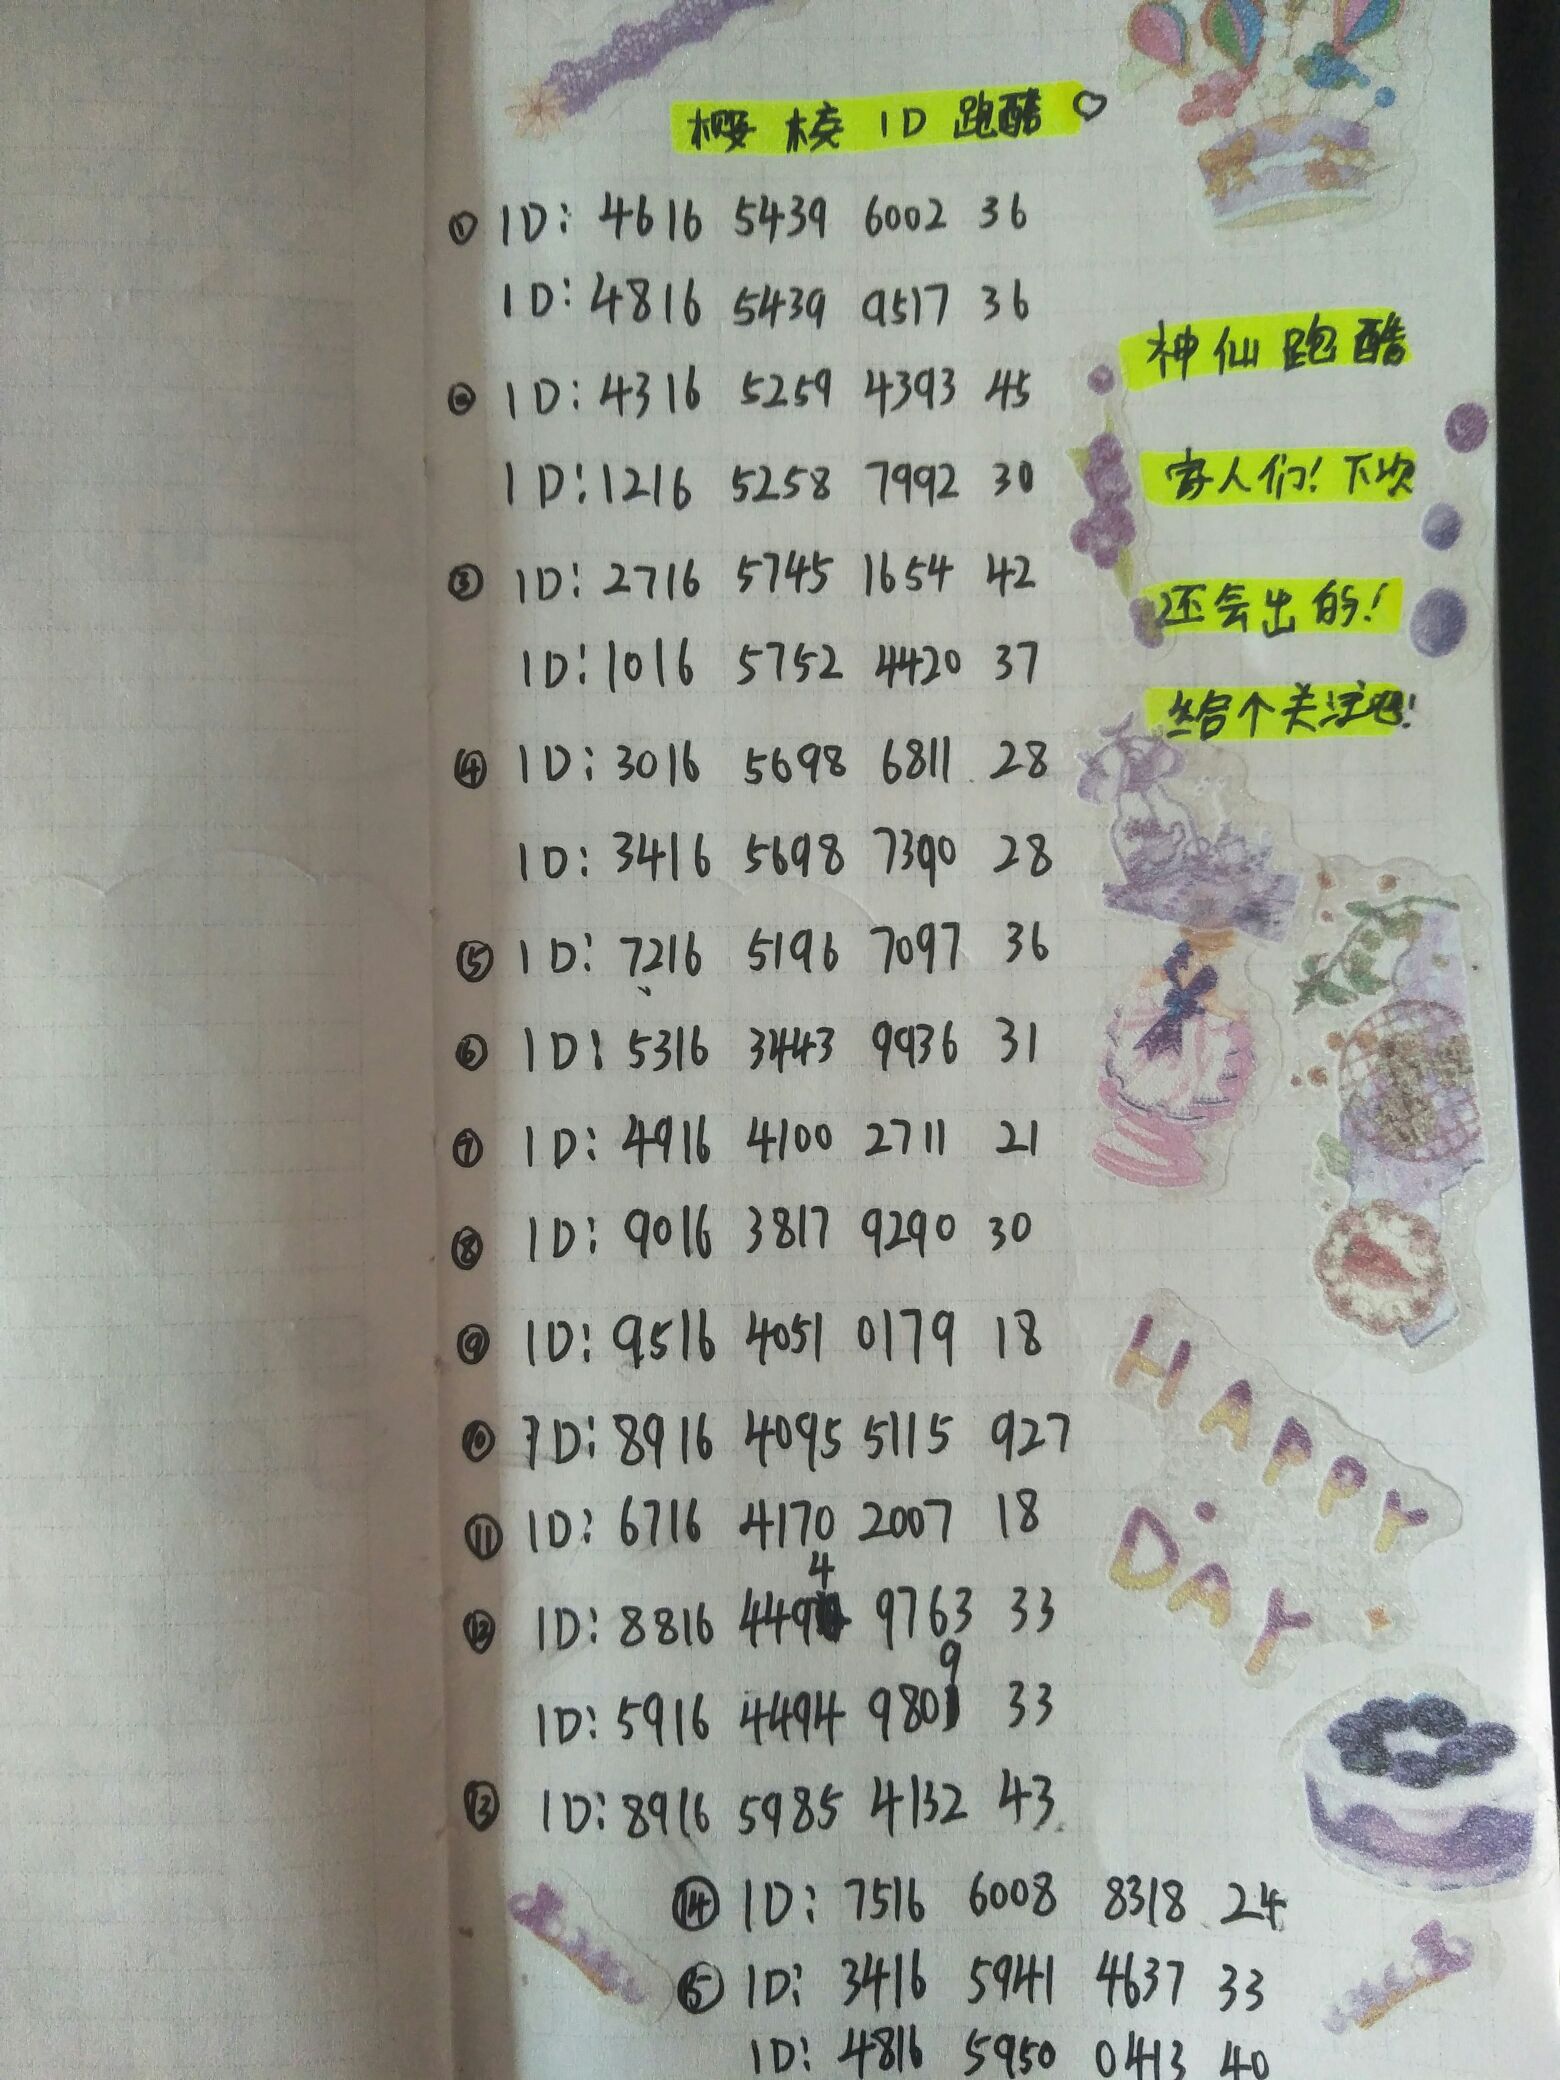 樱校ID跑酷♡
① ID: 4616 5439 6002 36
ID: 4816 5439 9517 36
② ID: 4316 5259 4393 45
ID: 1216 5258 7992 30
③ ID: 2716 5745 1654 42
ID: 1016 5752 4420 37
④ ID: 3016 5698 6811 28
ID: 3416 5698 7390 28
⑤ ID: 7216 5196 7097 36
⑥ ID: 5316 3443 9936 31
⑦ ID: 4916 4100 2711 21
⑧ ID: 9016 3817 9290 30
⑨ ID: 9516 4051 0179 18
⑩ ID: 8916 4095 5115 927
⑪ ID: 6716 4170 2007 18
⑫ ID: 8816 4494 9763 33
ID: 5916 4494 9809 33
⑬ ID: 8916 5985 4132 43
⑭ ID: 7516 6008 8318 24
⑮ ID: 3416 5941 4637 33
ID: 4816 5950 0413 40
神仙跑酷
家人们!下次
还会出的!
给个关注吧!
HAPPY
DAY